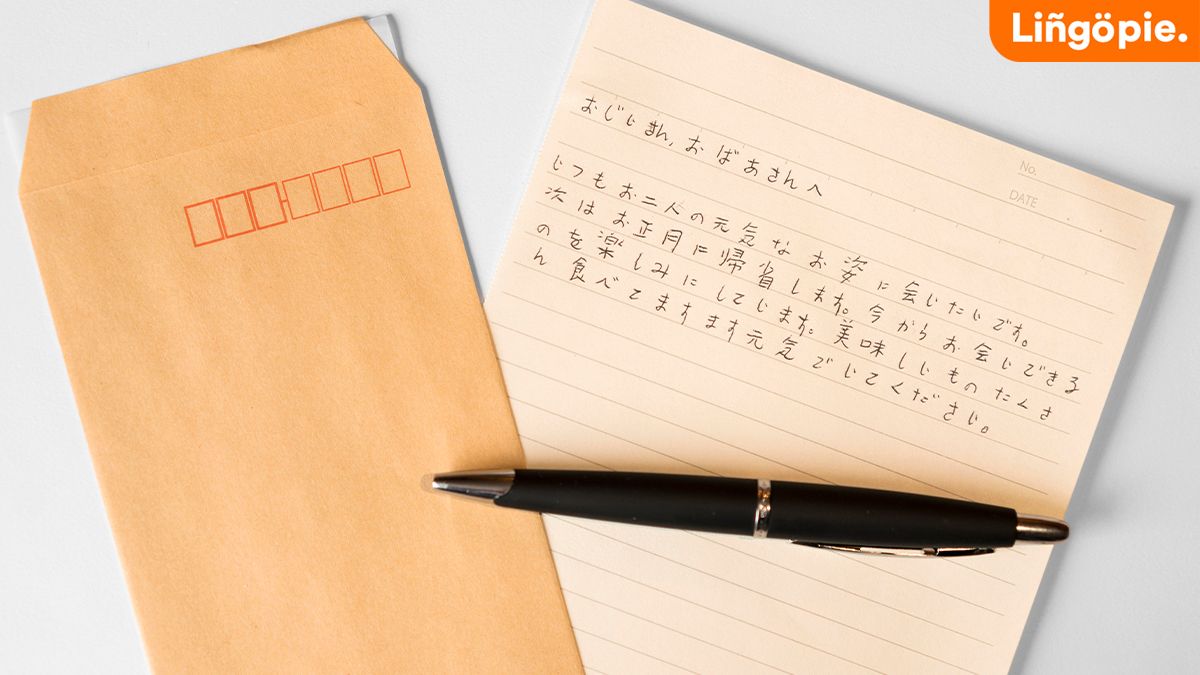 Liñgöpie.
No.
DATE
おじいさん, おばあさんへ
いつもお二人の元気なお姿に会いたいです。
次はお正月に帰省します。今からお会いできる
のを楽しみにしています。美味しいものたくさ
ん食べてますます元気でいてください。